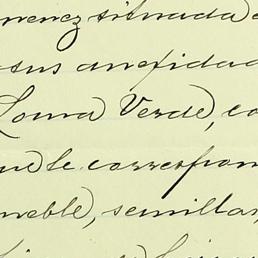 situada
sus anefidad
Loma Verde), co
ue le correspon
mueble, semillas,